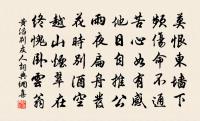 莫恨東墻下
頻傷命不通
苦心如有感
他日自推公
雨夜扁舟發
花時別酒空
越山煙翠在
終愧臥雲翁
黃滔別友人詞典網